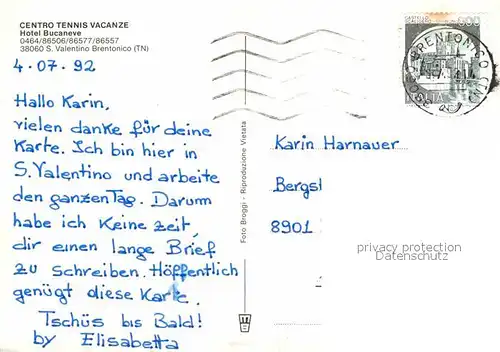 CENTRO TENNIS VACANZE
Hotel Bucaneve
0464/86506/86577/86557
38060 S. Valentino Brentonico (TN)
4.07.92
Hallo Karin,
vielen danke für deine
Karte. Ich bin hier in
S. Valentino und arbeite
den ganzen Tag. Darum
habe ich Keine zeit,
dir einen lange Brief
zu schreiben. Höffentlich
genügt diese Karte.
Tschüs bis Bald!
by Elisabetta
Foto Broggi - Riproduzione Vietata
600
BRENTONICO (TN)
Karin Harnauer
Bergsl
8901
privacy protection
Datenschutz